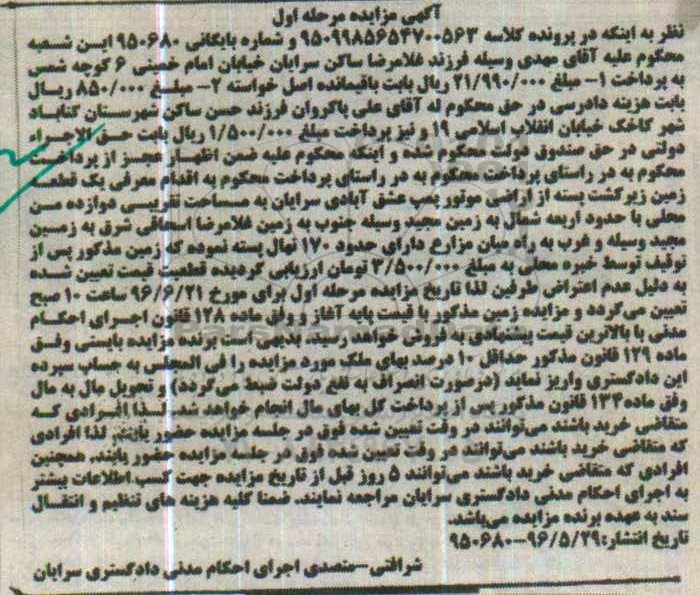 آگهی مزایده مرحله اول
نظر به اینکه در پرونده کلاسه ۹۵۰۹۹۸۵۶۵۴۷۰۰۵۶۳ و شماره بایگانی ۹۵۰۶۸۰ این شعبه
محکوم علیه آقای مهدی وسیله فرزند غلامرضا ساکن سرایان خیابان امام خمینی ۶ کوچه شمس
به پرداخت ۱- مبلغ ۲۱/۹۹۰/۰۰۰ ریال بابت باقیمانده اصل خواسته ۲- مبلغ ۸۵۰/۰۰۰ ریال
بابت هزینه دادرسی در حق محکوم له آقای علی پاکروان فرزند حسن ساکن شهرستان گناباد
شهر کاخک خیابان انقلاب اسلامی ۱۹ و نیز پرداخت مبلغ ۱/۵۰۰/۰۰۰ ریال بابت حق الاجراء
دولتی در حق صندوق دولت محکوم شده و اینکه محکوم علیه ضمن اظهار عجز از پرداخت
محکوم به در راستای پرداخت محکوم به در راستای پرداخت محکوم به اقدام معرفی یک قطعه
زمین زیرکشت پسته از اراضی موتور پمپ عشق آبادی سرایان به مساحت تقریبی دوازده من
محلی با حدود اربعه شمال به زمین مجید وسیله جنوب به زمین غلامرضا اسحاقی شرق به زمین
مجید وسیله و غرب به راه میان مزارع دارای حدود ۱۷۰ نهال پسته نموده که زمین مذکور پس از
توقیف توسط خبره محلی به مبلغ ۳/۵۰۰/۰۰۰ تومان ارزیابی گردیده قطعیت قیمت تعیین شده
به دلیل عدم اعتراض طرفین لذا تاریخ مزایده مرحله اول برای مورخ ۹۶/۶/۲۱ ساعت ۱۰ صبح
تعیین می‌گردد و مزایده زمین مذکور با قیمت پایه آغاز و وفق ماده ۱۲۸ قانون اجرای احکام
مدنی با بالاترین قیمت پیشنهادی به فروش خواهد رسید. بدیهی است برنده مزایده بایستی وفق
ماده ۱۲۹ قانون مذکور حداقل ۱۰ درصد بهای ملک مورد مزایده را فی المجلس به حساب سپرده
این دادگستری واریز نماید (درصورت انصراف به نفع دولت ضبط می‌گردد) و تحویل مال به مال
وفق ماده۱۳۴ قانون مذکور پس از پرداخت کل بهای مال انجام خواهد شد. لذا افرادی که
متقاضی خرید باشند می‌توانند در وقت تعیین شده فوق در جلسه مزایده حضور یابند. لذا افرادی
که متقاضی خرید باشند می‌توانند در وقت تعیین شده فوق در جلسه مزایده حضور یابند. همچنین
افرادی که متقاضی خرید باشند می‌توانند ۵ روز قبل از تاریخ مزایده جهت کسب اطلاعات بیشتر
به اجرای احکام مدنی دادگستری سرایان مراجعه نمایند. ضمنا کلیه هزینه های تنظیم و انتقال
سند به عهده برنده مزایده می‌باشد.
تاریخ انتشار:۹۶/۵/۲۹-۹۵۰۶۸۰
شرافتی-متصدی اجرای احکام مدنی دادگستری سرایان
ParsNamadData